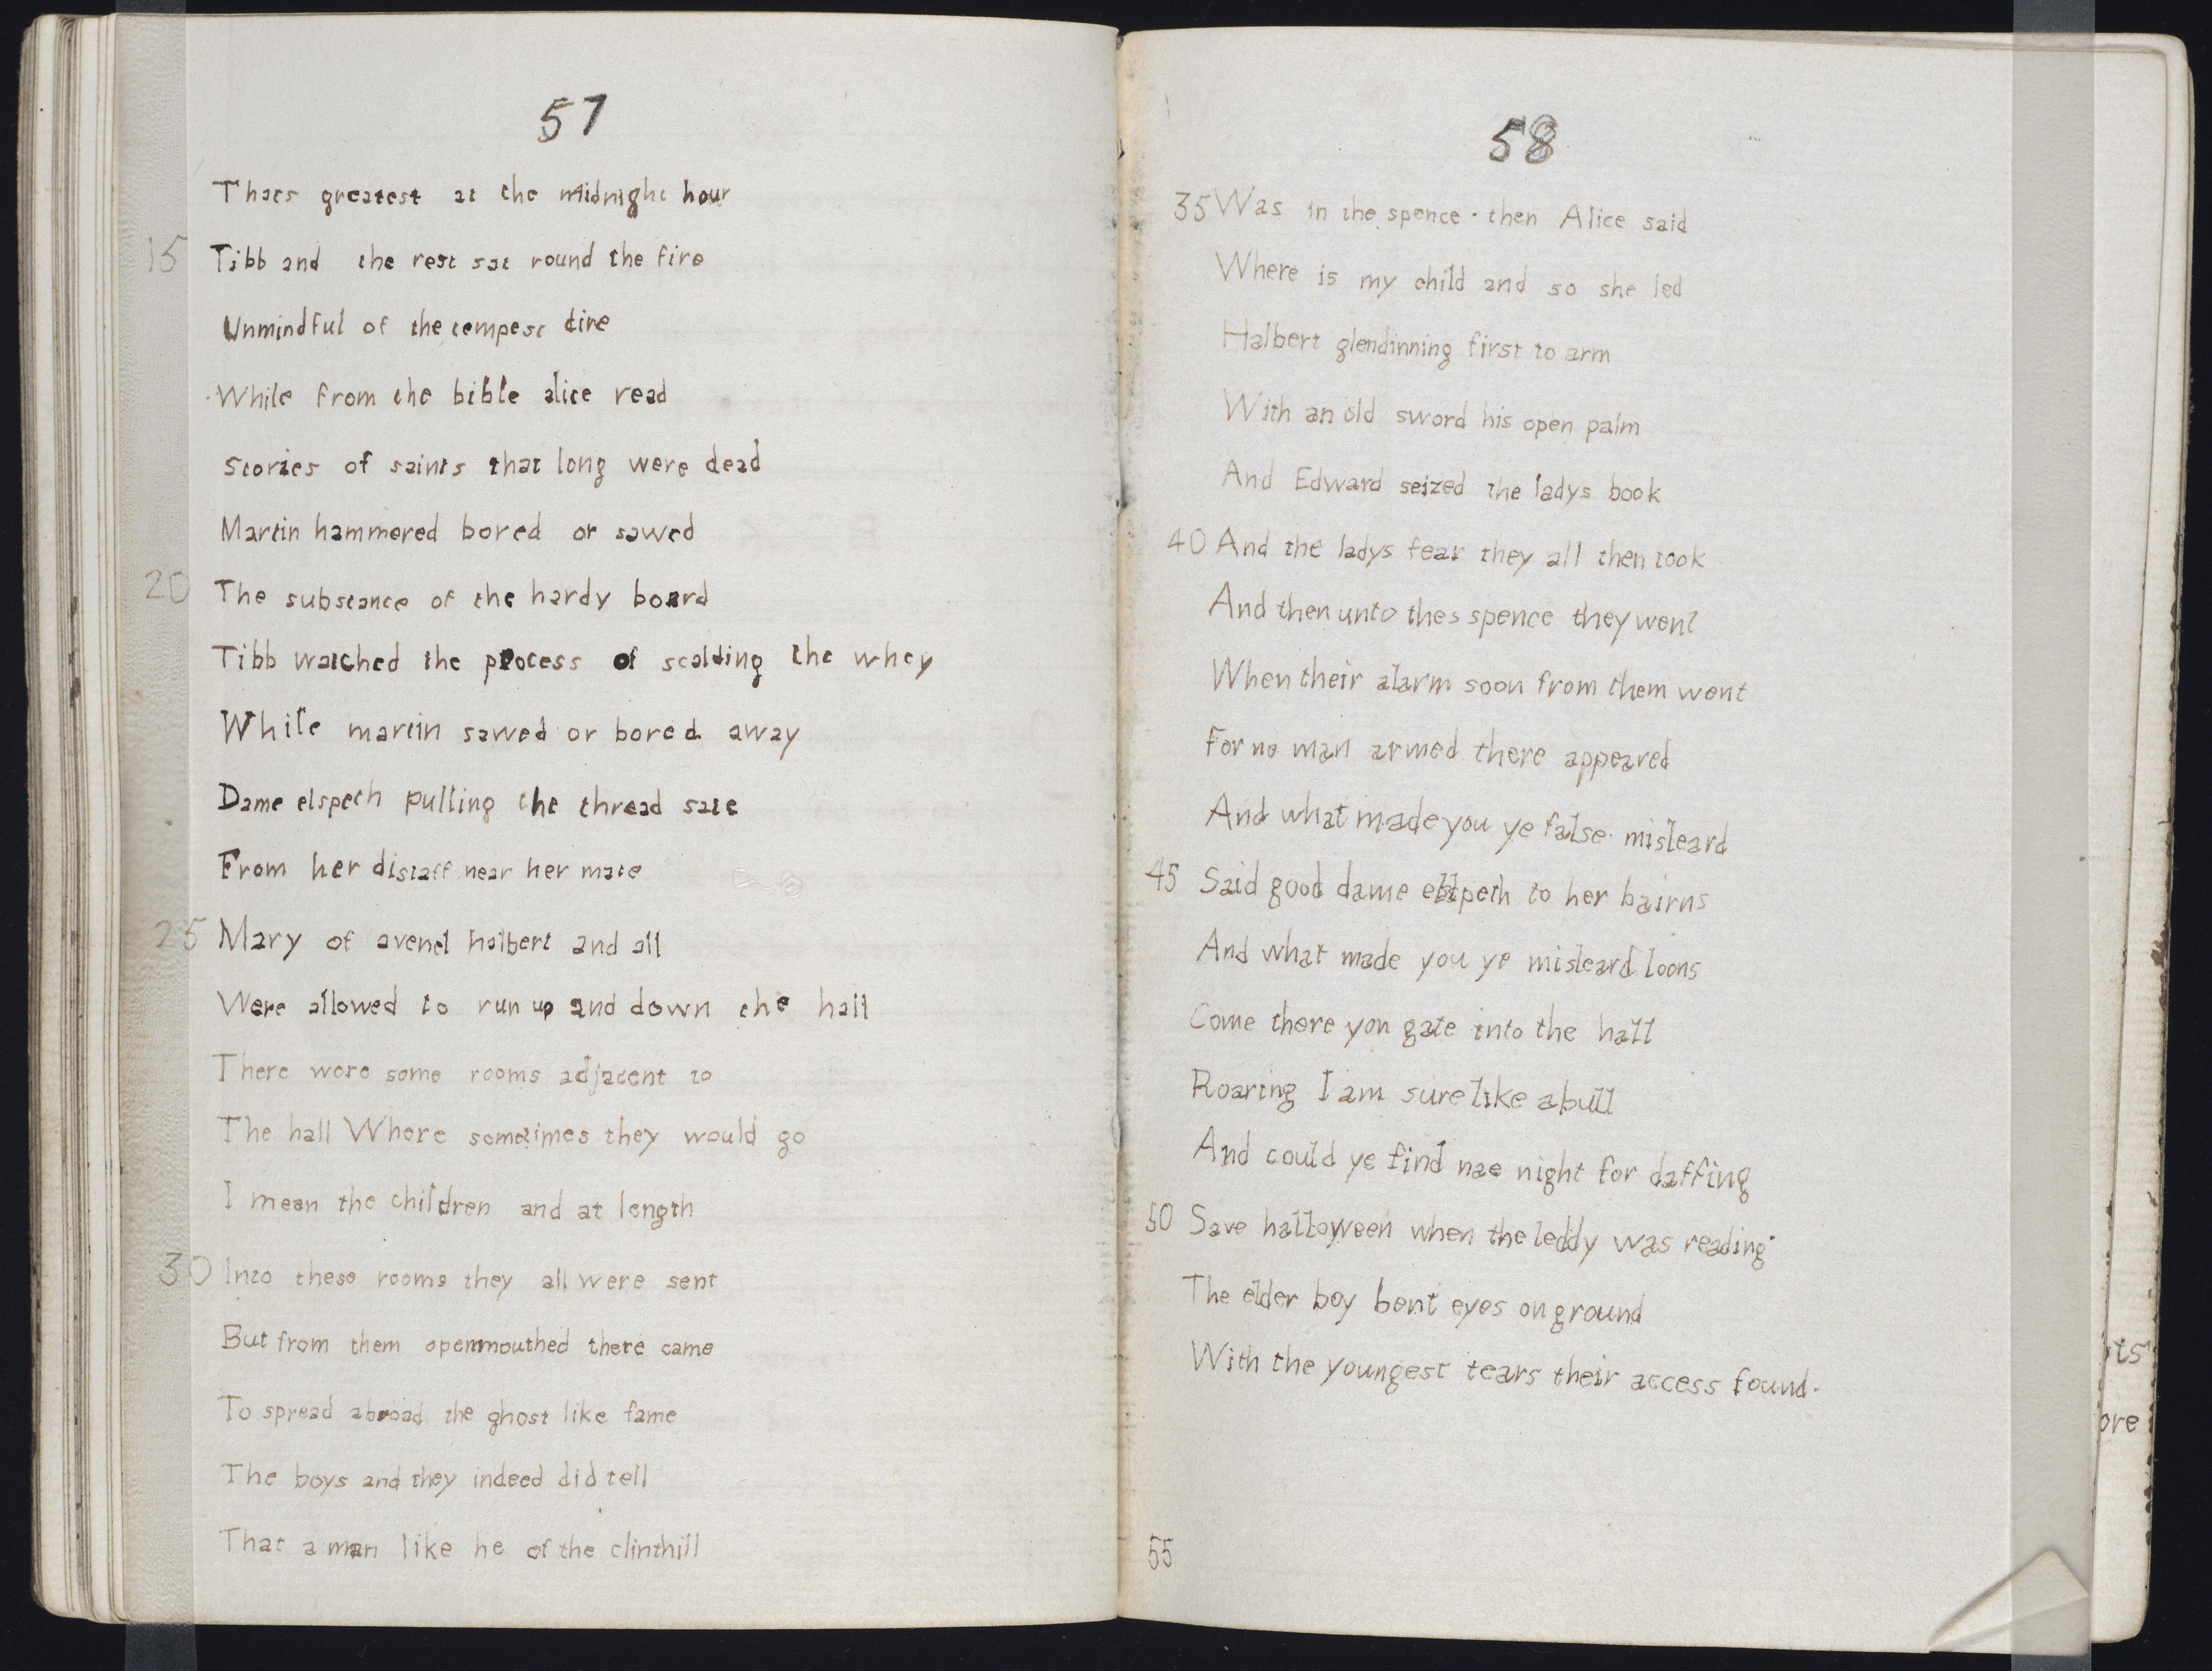 57
Thats greatest at the midnight hour
15 Tibb and the rest sat round the fire
Unmindful of the tempest dire
While from the bible alice read
Stories of saints that long were dead
Martin hammered bored or sawed
20 The substance of the hardy board
Tibb watched the process of scalding the whey
While martin sawed or bored away
Dame elspeth pulling the thread sate
From her distaff near her mate
25 Mary of avenel halbert and all
Were allowed to run up and down the hall
There were some rooms adjacent to
The hall Where sometimes they would go
I mean the children and at length
30 Into these rooms they all were sent
But from them openmouthed there came
To spread abroad the ghost like fame
The boys and they indeed did tell
That a man like he of the clinthill
58
35 Was in the spence. then Alice said
Where is my child and so she led
Halbert glendinning first to arm
With an old sword his open palm
And Edward seized the ladys book
40 And the ladys fear they all then took
And then unto thes spence they went
When their alarm soon from them went
For no man armed there appeared
And what made you ye false misleard
45 Said good dame elspeth to her bairns
And what made you ye misleard loons
Come there yon gate into the hall
Roaring I am sure like a bull
And could ye find nae night for daffing
50 Save halloween when the leddy was reading
The elder boy bent eyes on ground
With the youngest tears their access found.
55
ts
ore